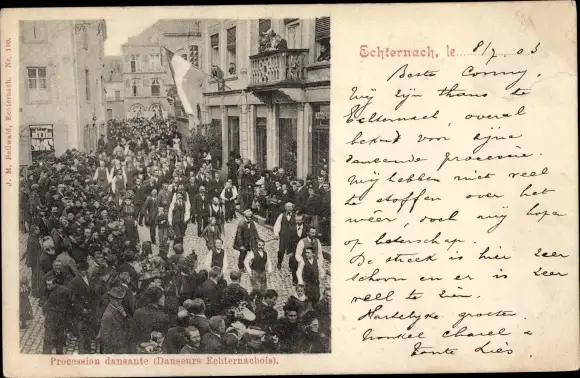 J. M. Bellwald, Echternach. Nr. 100.
Echternach, le 8/7 03
Beste Conny,
Wij zijn thans te
Echternach, overal
bekend voor zijne
dansende processie.
Wij hebben niet veel
te stoffen over het
wéér, doch wij hopen
op beterschap.
De streek is hier zeer
schoon en er is zeer
veel te zien.
Hartelijke groeten
Nonkel Charel &
Tante Liès.
Procession dansante (Danseurs Echternachois).